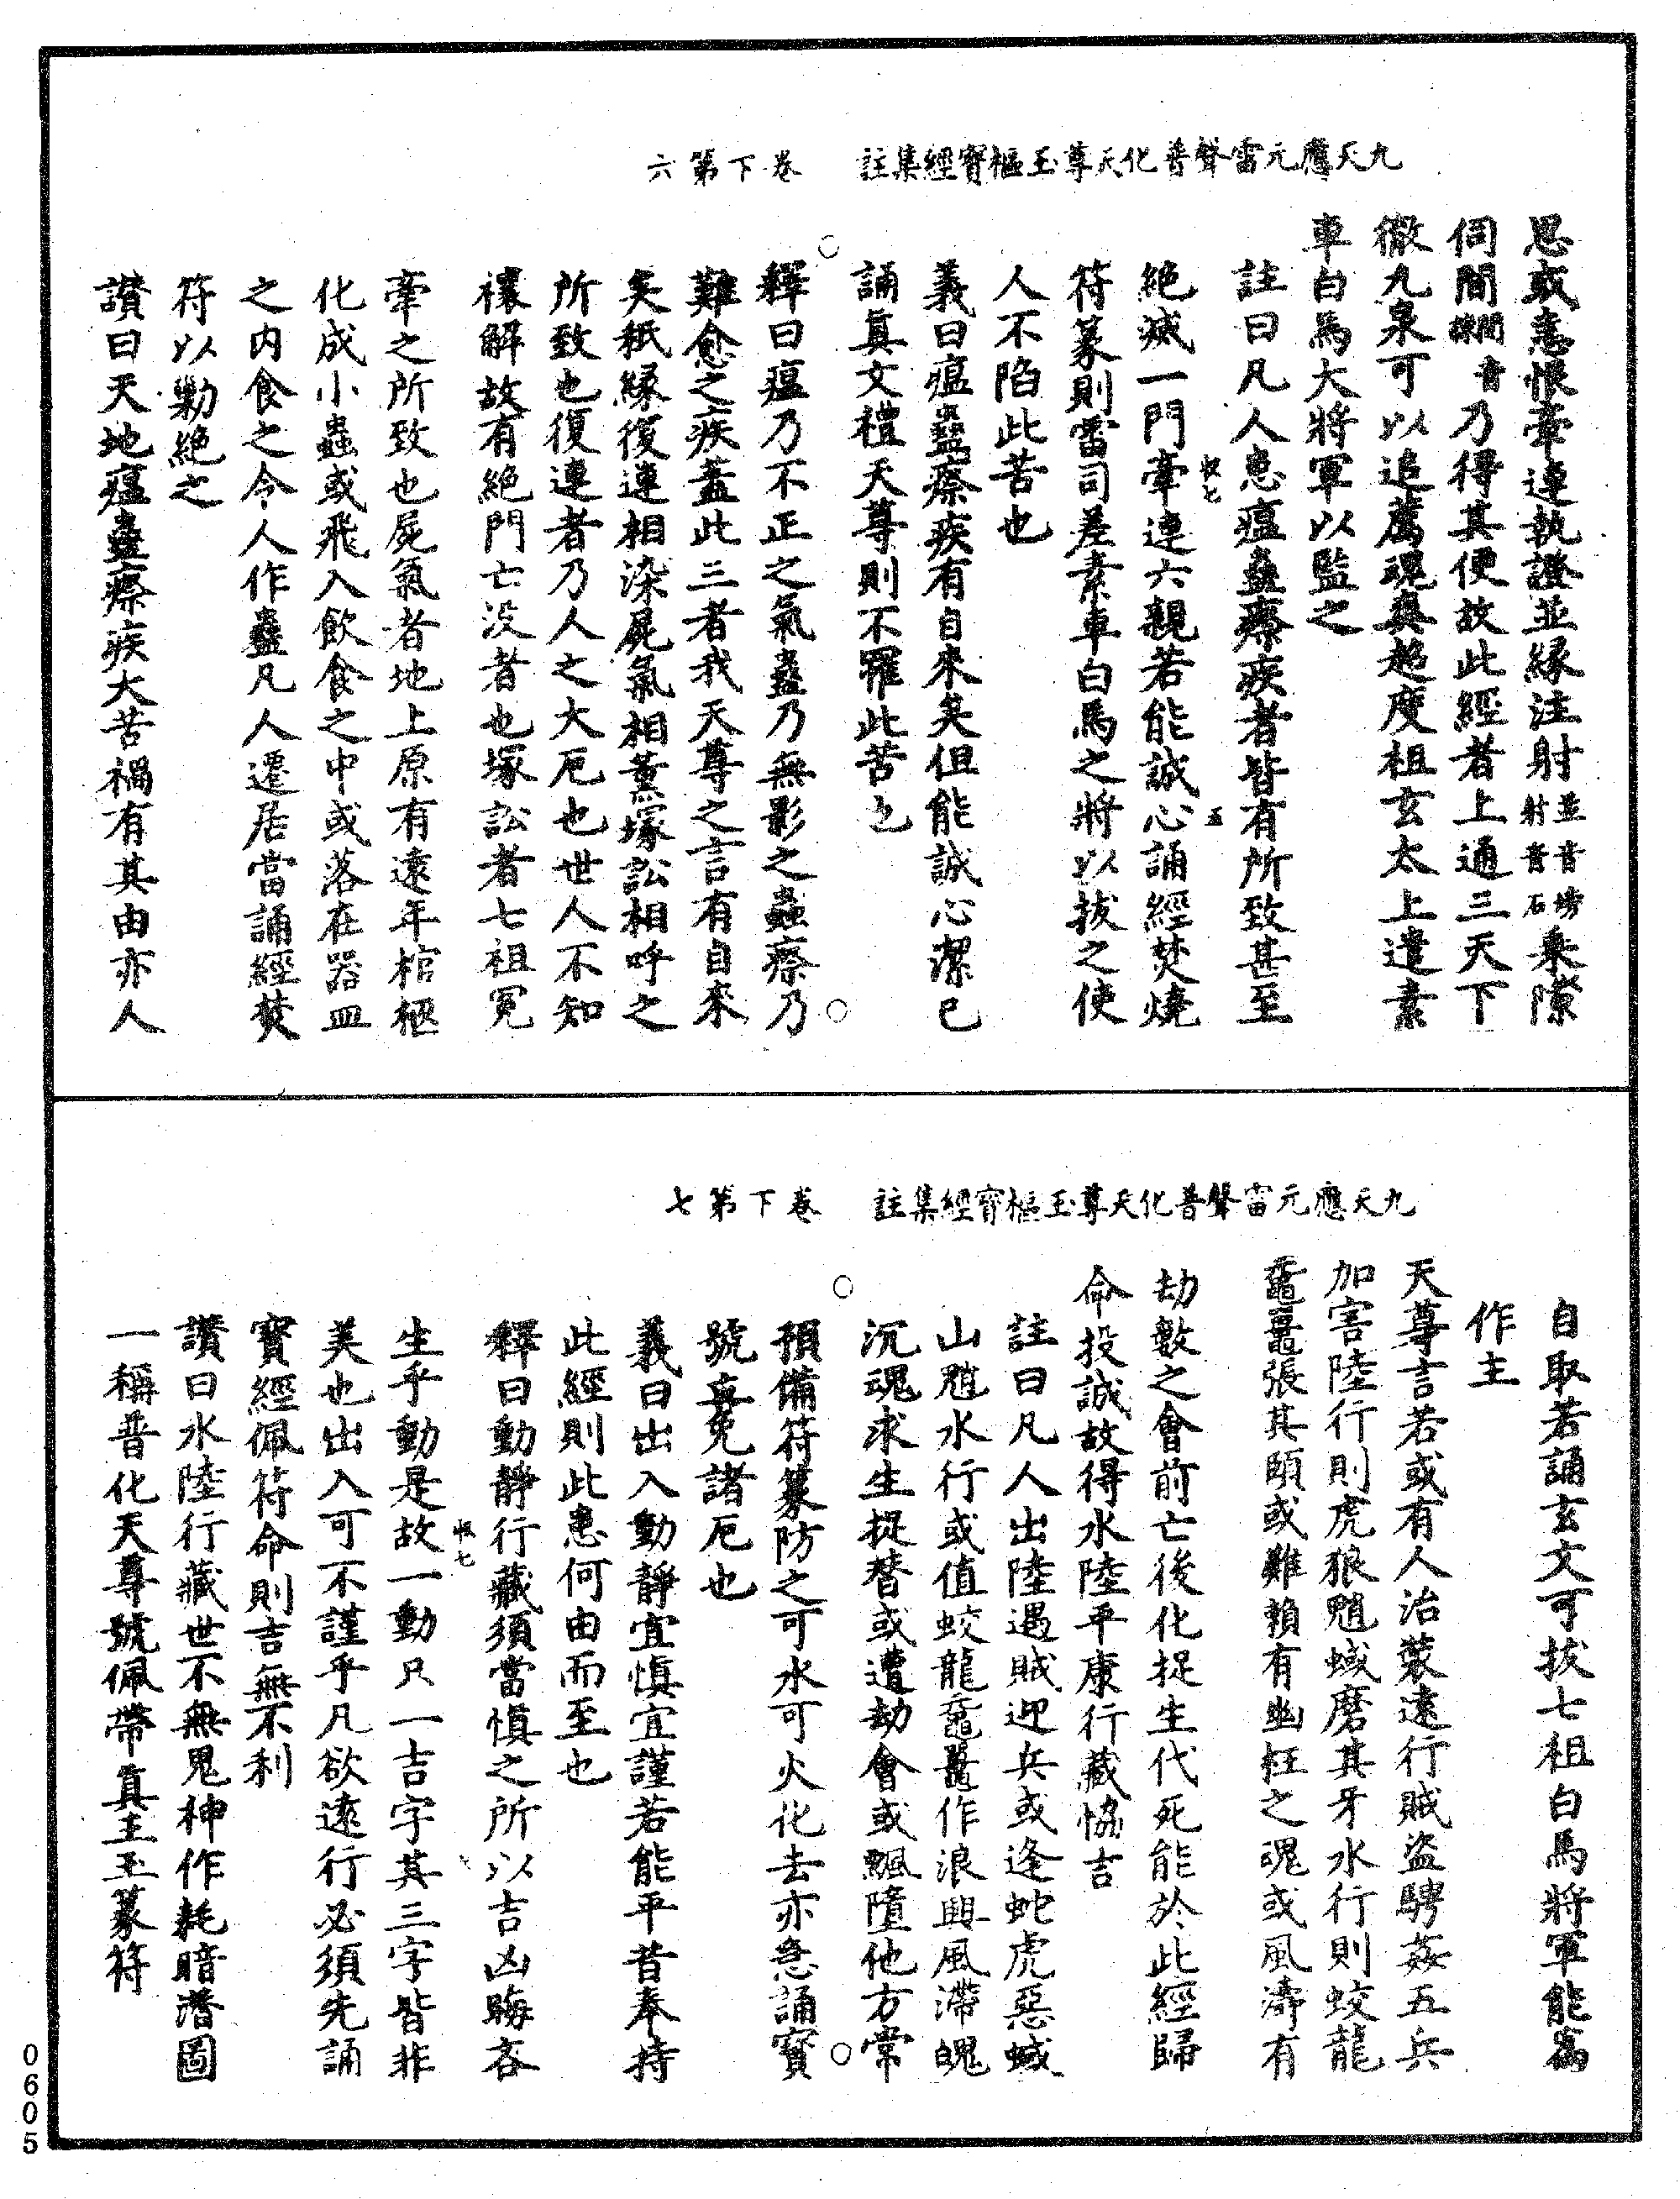 九天應元雷聲普化天尊玉樞寶經集註　卷下第六
思或恚恨牽連執證並緣注射並音傍射音石乘隙
伺間間音諫乃得其便故此經者上通三天下
徹九泉可以追薦魂爽超度祖玄太上遣素
車白馬大將軍以監之
註曰凡人患瘟蠱瘵疾者皆有所致甚至
絕滅一門牽連六親若能誠心誦經焚燒
符篆則雷司差素車白馬之將以拔之使
人不陷此苦也
義曰瘟蠱瘵疾有自來矣但能誠心潔已
誦真文禮天尊則不罹此苦也
釋曰瘟乃不正之氣蠱乃無影之蟲瘵乃
難愈之疾蓋此三者我天尊之言有自來
矣秖緣復連相染屍氣相薰塚訟相呼之
所致也復連者乃人之大厄也世人不知
禳解故有絕門亡沒者也塚訟者七祖冤
牽之所致也屍氣者地上原有遠年棺柩
化成小蟲或飛入飲食之中或落在器皿
之内食之令人作蠱凡人遷居當誦經焚
符以勦絕之
讚曰天地瘟蠱瘵疾大苦禍有其由亦人
九天應元雷聲普化天尊玉樞寶經集註　卷下第七
自取若誦玄文可拔七祖白馬將軍能爲
作主
天尊言若或有人治裝遠行賊盜騁姦五兵
加害陸行則虎狼魍蜮磨其牙水行則蛟龍
黿鼉張其頤或難賴有幽枉之魂或風濤有
劫數之會前亡後化捉生代死能於此經歸
命投誠故得水陸平康行藏恊吉
註曰凡人出陸遇賊迎兵或逢蛇虎惡蜮
山魈水行或值蛟龍黿鼉作浪興風滯魄
沉魂求生捉替或遭劫會或飄墮他方常
預備符篆防之可水可火化去亦急誦寶
號真免諸厄也
義曰出入動靜宜慎宜謹若能平昔奉持
此經則此患何由而至也
釋曰動靜行藏須當慎之所以吉凶晦吝
生乎動是故一動只一吉字其三字皆非
美也出入可不謹乎凡欲遠行必須先誦
寶經佩符命則吉無不利
讚曰水陸行藏世不無鬼神作耗暗潛圖
一稱普化天尊號佩帶真王玉篆符
0605